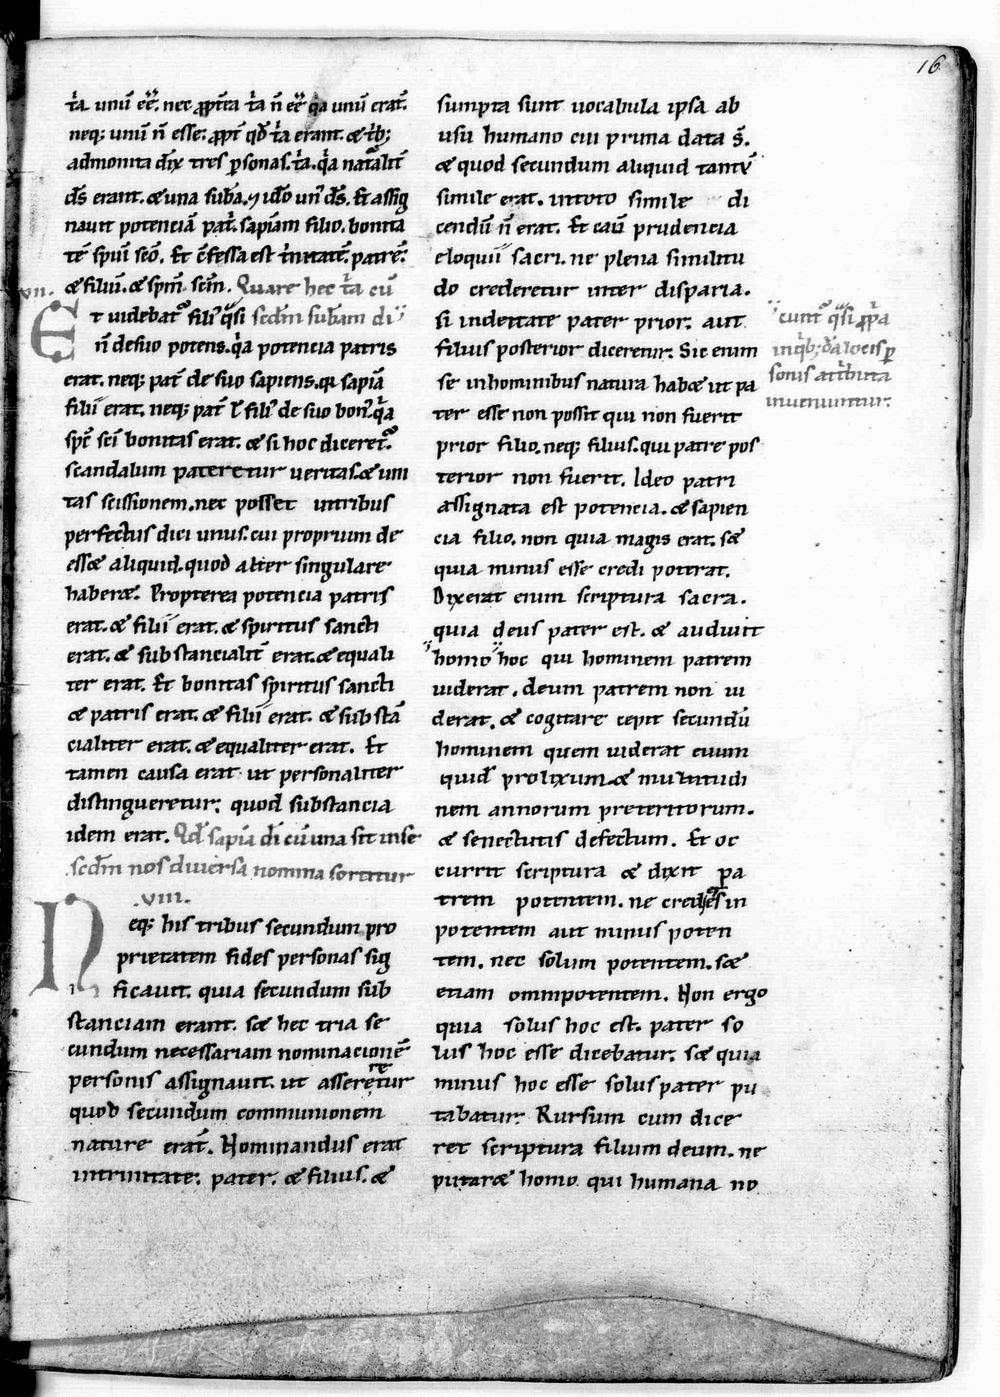 16
t̾a unū ēe᷑. nec ꝓpt̾ea t̾a n̄ ēe᷑ q̾a unū erat᷑.
neq; unū n̄ esse: ꝓpt̾ qđ t̾a erant. & t̾ib;
admonita dix̄ tres ꝑsonas. t̾a. q̾a nat̾alit̄
dꝰs erant. & una sub̄a. ⁊ idō unꝰ dꝰs. Et assig
nauit potenciā pat̾. sapiām filio. bonita
tē spūi sc̄o. Et c̄fessa est t̾initatē. patrē.
& filiū. & spm̄. sc̄m. Quare hec t̾a cū
VII.
Et uidebat᷑ filiꝰ q̾si sc̄dm subām di
n̄ de suo potens. q̾a potencia patris
erat. neq; pat̾ de suo sapiens. qꝛ sapiā
filii erat. neq; pat̾ ł filiꝰ de suo bonꝰ. q̾a
spc̄ sc̄i bonitas erat. & si hoc diceret᷑.
scandalum pateretur ueritas. & uni
tas scissionem. nec posset in tribus
perfectus dici unus. cui proprium de
ess& aliquid. quod alter singulare
haber&. Propterea potencia patris
erat. & filii erat. & spiritus sancti
erat. & substancialit̄ erat. & equali
ter erat. Et bonitas spiritus sancti
& patris erat. & filii erat. & substā
cialiter erat. & equaliter erat. Et
tamen causa erat ut personaliter
distingueretur; quod substancia
idem erat. Qđ sapiā di cū una sit in se
sc̄dm nos diuersa nomina sortitur
.VIII.
Neq; his tribus secundum pro
prietatem fides personas sig
nificauit. quia secundum sub
stanciam erant. s& hec tria se
cundum necessariam nominacionē
personis assignauit. ut assereretur
quod secundum communionem
nature erāt. Nominandus erat
in trinitate. pater. & filius. &
sumpta sunt uocabula ipsa ab
usu humano cui pruna data s̄.
& quod secundum aliquid tantū
simile erat. in toto simile di
cendū n̄ erat. Et cauit prudencia
eloquii sacri. ne plena similitu
do crederetur inter disparia.
si in deitate pater prior. aut
filius posterior diceretur. Sic enim
se in hominibus natura hab& ut pa
ter esse non possit qui non fuerit
prior filio. neq; filius. qui patre pos
terior non fuerit. Ideo patri
assignata est potencia. & sapien
cia filio. non quia magis erat. s&
quia minus esse credi poterat.
Dixerat enim scriptura sacra.
quia deus pater est. & audiuit
homo hoc qui hominem patrem
uiderat. deum patrem non ui
derat. & cogitare cepit secundū
hominem quem uiderat euum
quidē prolixum. & multitudi
nem annorum preteritorum.
& senectutis defectum. Et oc
currit scriptura & dixit pa
trem potentem. ne credas in
potentem aut minus poten
tem. nec solum potentem. s&
etiam omnipotentem. Non ergo
quia solus hoc est. pater so
lus hoc esse dicebatur. s& quia
minus hoc esse solus pater pu
tabatur. Rursum cum dice
ret scriptura filium deum. ne
putar& homo qui humana no
cunt᷑ q̾si ꝓp̄a
in q̾b; d̾a locis ꝑ
sonis att̾ibuta
inueniuntur.